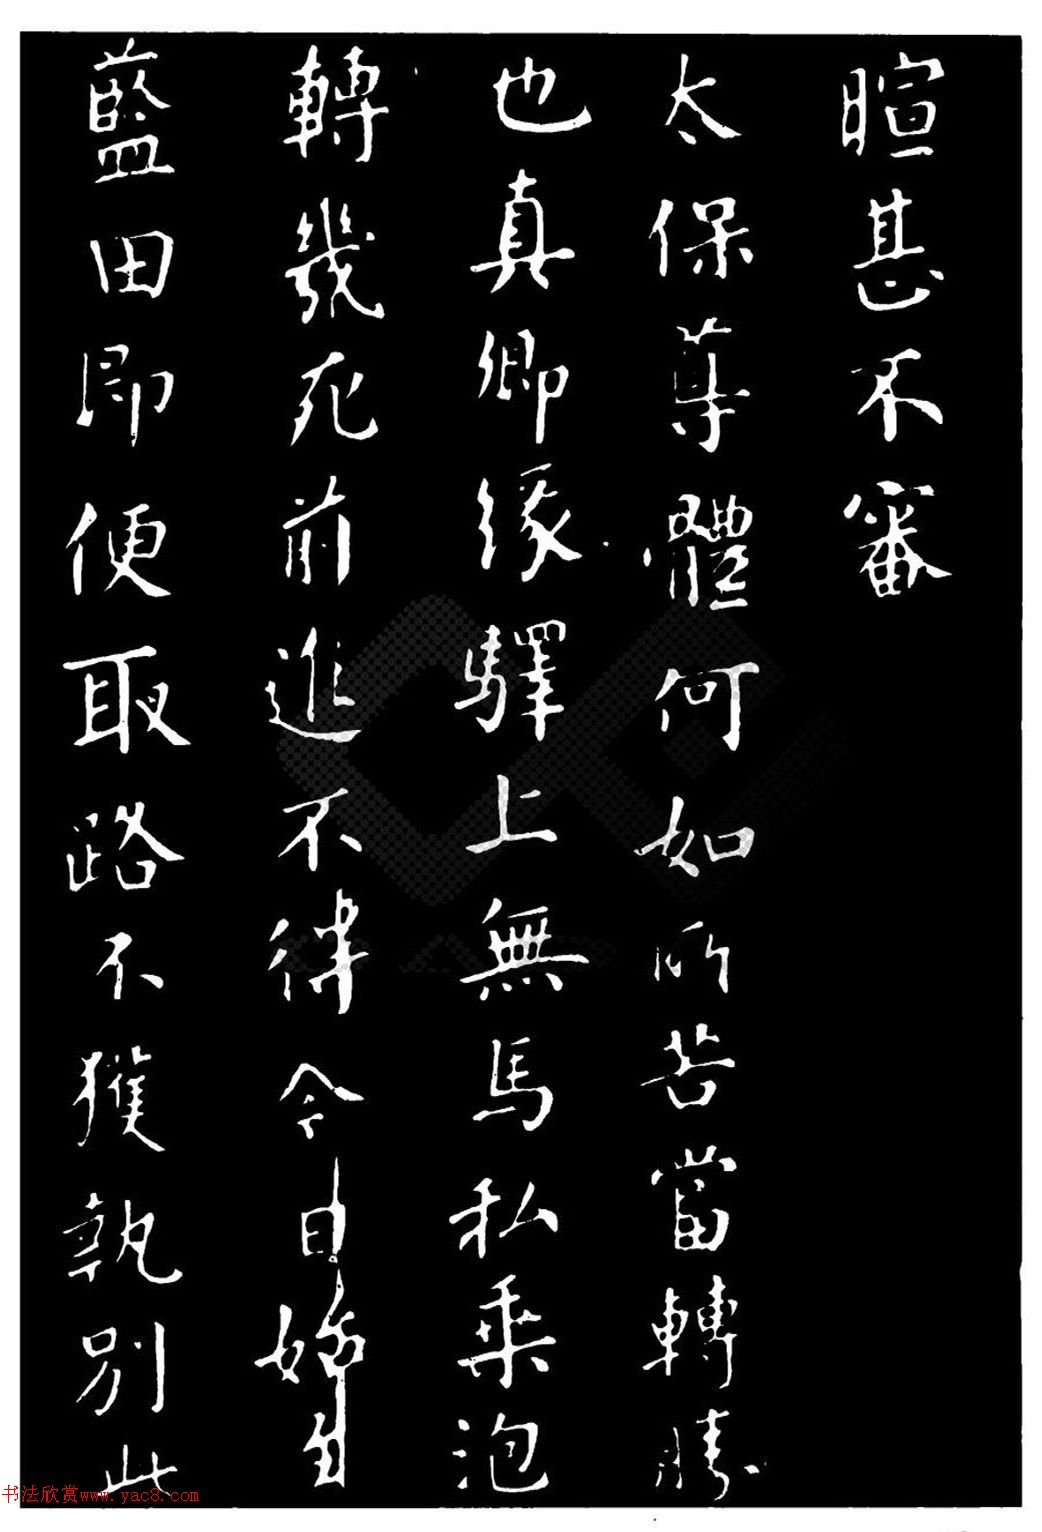 暄甚不審
太保尊體何如所苦當轉勝
也真卿緣驛上無馬私乘泡
轉幾死前進不律今日始自
藍田即便取路不獲執別此
书法欣赏www.yac8.com